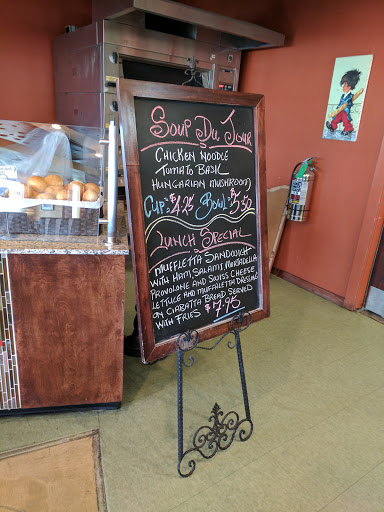 Soup Du Jour
Chicken Noodle
Tomato Basil
Hungarian Mushroom
Cup $4.25 Bowl $5.50
Lunch Special
Muffletta Sandwich
with Ham, Salami Mortadella
Provolone and Swiss Cheese
Lettuce and Muffaletta Dressing
on Ciabatta Bread Served
with Fries $7.95